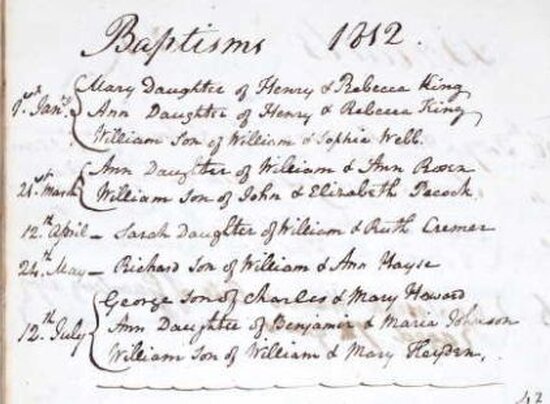 Baptisms 1812.
Mary Daughter of Henry & Rebecca King
Jan.y Ann Daughter of Henry & Rebecca King
William Son of William & Sophia Webb.
Ann Daughter of William & Ann
21st March William Son of John & Elizabeth Pecock.
12th April – Sarah Daughter of William & Ruth Cremer
24th May – Richard Son of William & Ann Hayse
George Son of Charles & Mary Howard
12th July Ann Daughter of Benjamin & Maria Johnson
William Son of William & Mary Heyden.
42